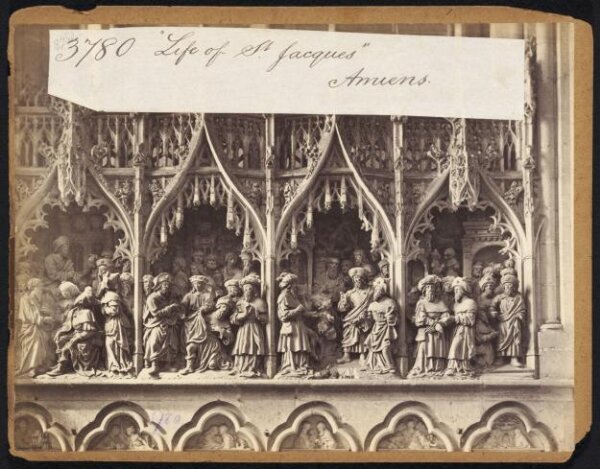 3780 "Life of St Jacques"
Amiens.